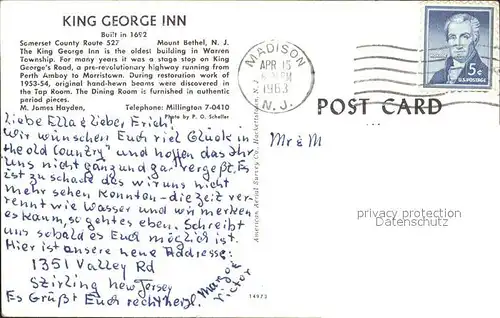 KING GEORGE INN
Built in 1692
Somerset County Route 527 Mount Bethel, N. J.
The King George Inn is the oldest building in Warren
Township. For many years it was a stage stop on King
George's Road, a pre-revolutionary highway running from
Perth Amboy to Morristown. During restoration work of
1953-54, original hand-hewn beams were discovered in
the Top Room. The Dining Room is furnished in authentic
period pieces.
M. James Hayden, Telephone: Millington 7-0410
Photo by P. O. Scheller
MADISON
APR 15
PM
1963
N. J.
5¢
U.S. POSTAGE
POST CARD
Liebe Ella & Lieber Erich!
Wir wünschen Euch viel Glück in
the old Country" und hoffen das Ihr
uns nicht ganz und gar vergeßt. Es
ist zu schade das wir uns nicht
mehr sehen konnton - die zeit ver-
rennt wie Wasser und wir merken
es kaum, so gehts eben. Schreibt
uns sobald es Euch möglich ist.
Hier ist unsere neue Adresse:
1351 Valley Rd
Stirling New Jersey
Es Grüßt Euch recht herzl.
Margot
Victor
Mr & M
American Aerial Survey Co. Hackettstown, N.J.
14973
privacy protection
Datenschutz